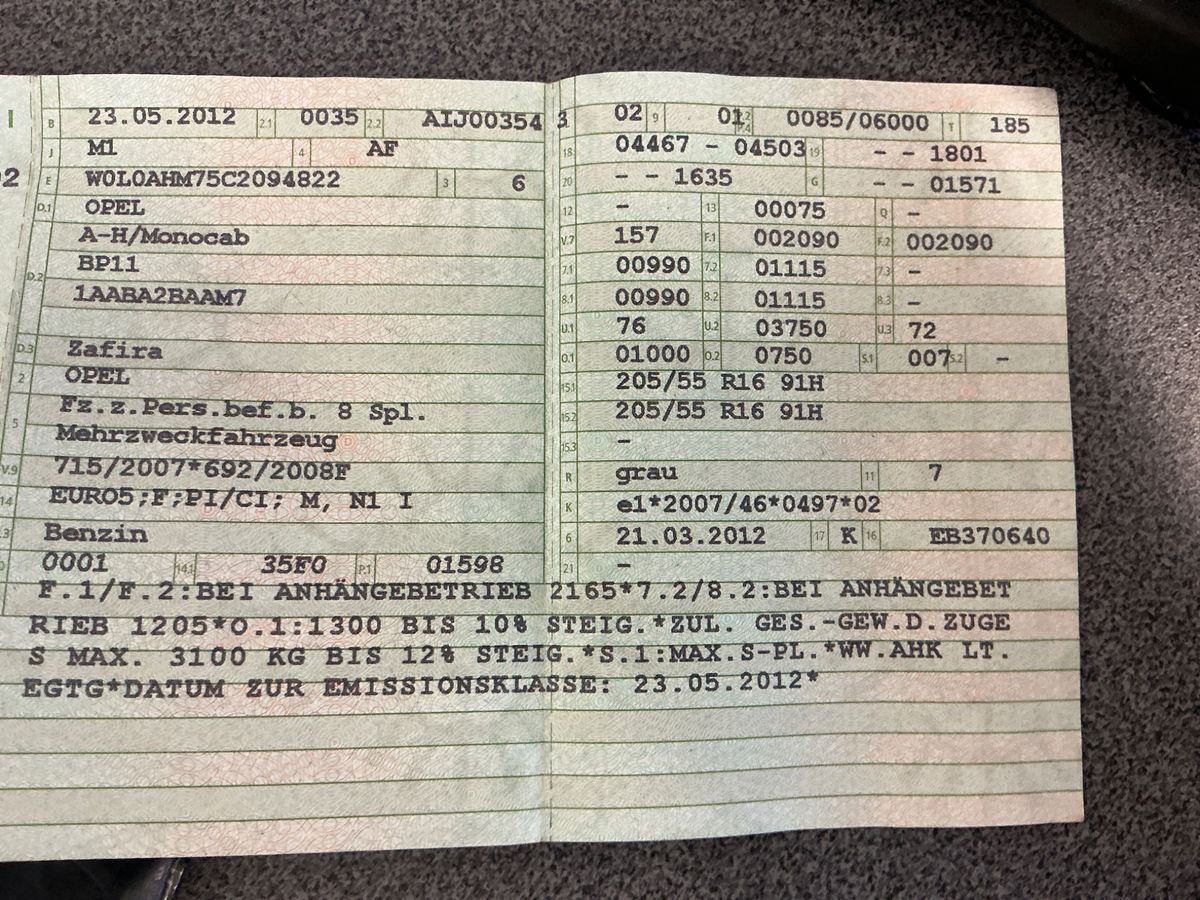 I
02
B 23.05.2012 2.1 0035 2.2 AIJ00354 3
J M1 4 AF
E W0L0AHM75C2094822 3 6
D.1 OPEL
A-H/Monocab
D.2 BP11
1AABA2BAAM7
D.3 Zafira
2 OPEL
5 Fz.z.Pers.bef.b. 8 Spl.
Mehrzweckfahrzeug
V.9 715/2007*692/2008F
14 EURO5;F;PI/CI; M, N1 I
Benzin
0001 14.1 35F0 P.1 01598
02 9 01 0085/06000 T 185
18 04467 - 04503 19 - - 1801
20 - - 1635 G - - 01571
12 - 13 00075 Q -
V.7 157 F.1 002090 F.2 002090
7.1 00990 7.2 01115 7.3 -
8.1 00990 8.2 01115 8.3 -
U.1 76 U.2 03750 U.3 72
O.1 01000 O.2 0750 S.1 007 S.2 -
15.1 205/55 R16 91H
15.2 205/55 R16 91H
15.3 -
R grau 11 7
K e1*2007/46*0497*02
6 21.03.2012 17 K 16 EB370640
21 -
F.1/F.2:BEI ANHÄNGEBETRIEB 2165*7.2/8.2:BEI ANHÄNGEBET
RIEB 1205*O.1:1300 BIS 10% STEIG.*ZUL. GES.-GEW.D.ZUGE
S MAX. 3100 KG BIS 12% STEIG.*S.1:MAX.S-PL.*WW.AHK LT.
EGTG*DATUM ZUR EMISSIONSKLASSE: 23.05.2012*